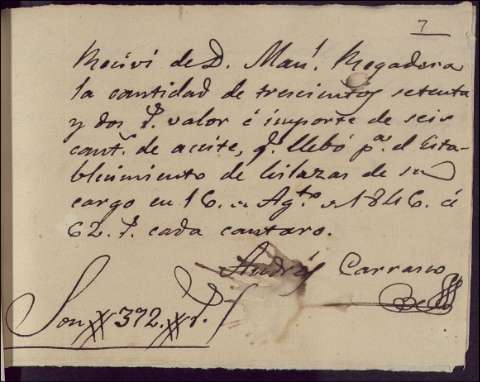 7
Recivi de D. Man.l Regadera
la cantidad de trescientos setenta
y dos r.s valor é importe de seis
cant.s de aceite, q.e llebó p.a el Esta-
blecimiento de hilazas de su
cargo en 16. de Agto. de 1846. á
62. r.s cada cantaro.
Andrés Carrasco
Son # 372. # r.s